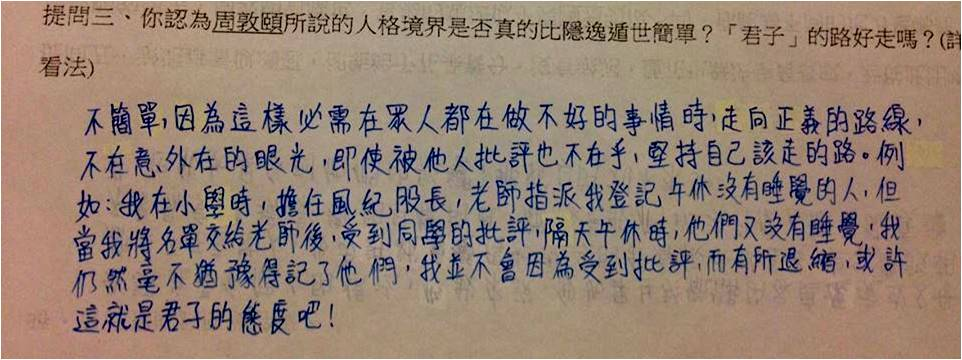 提問三、你認為周敦頤所說的人格境界是否真的比隱逸遁世簡單？「君子」的路好走嗎？(詳
看法)
不簡單，因為這樣必需在眾人都在做不好的事情時，走向正義的路線，
不在意外在的眼光，即使被他人批評也不在乎，堅持自己該走的路。例
如：我在小學時，擔任風紀股長，老師指派我登記午休沒有睡覺的人，但
當我將名單交給老師後，受到同學的批評，隔天午休時，他們又沒有睡覺，我
仍然毫不猶豫得記了他們，我並不會因為受到批評，而有所退縮，或許
這就是君子的態度吧！